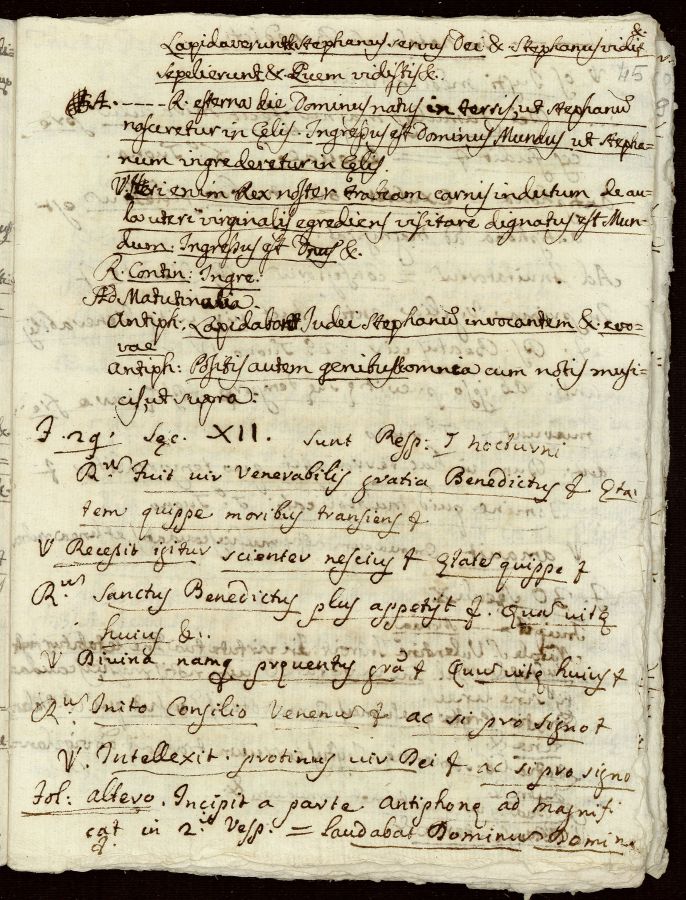 &.
Lapidaverunt & Stephanus servus Dei & Stephanus vidit
45
Sepelierunt & Quem vidistis &.
A. ---- R. esterna die Dominus natus in terris, ut Stephanū
nasceretur in Cęlis. Ingressus est Dominus Mundus ut Stepha=
num ingrederetur in Cęlis
V. Heri enim Rex noster trabeam carnis indutum de au=
la uteri virginalis egrediens visitare dignatus est Mun=
dum: Ingressus est Dnus &.
R. Contin: Ingre:
Ad Matutinalia.
Antiph: Lapidabant Judei Stephanū invocantem &. evo=
vae
Antiph: Positis autem genibus & omnia cum notis musi=
cis, ut supra:
F. 29. Sęc. XII. sunt Resp: I nocturni
R.us Fuit vir Venerabilis gratia Benedictus & Ęta
tem quippe moribus transiens &
V Recessit igitur scienter nescius & Ętatē quippe &
R.us Sanctus Benedictus plus appetijt &. Quā vitę
huius &.
V Divina namq pręventus grā & Quā vitę huius &
R.us Inito Consilio Venenū & ac si pro signo &
V. Intellexit protinus vir Dei & ac si pro signo
Fol: altero. Incipit a parte Antiphonę ad Magnifi
cat in 2.is Vesp. = laudabat Dominū Domin
&.